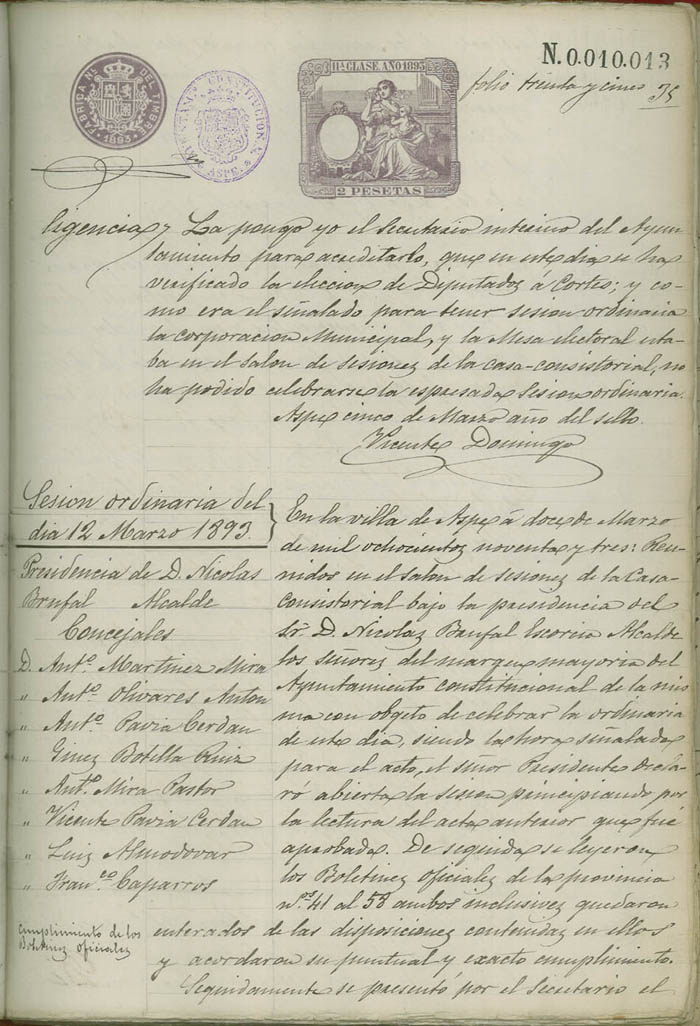 N.0.010.013
folio treinta y cinco 35
FABRICA NAL. DEL TIMBRE
1893
CONSTITUCIONAL
ASPE.
11ª CLASE. AÑO 1893
2 PESETAS
ligencia, La pongo yo el Secretario interino del Ayun-
tamiento para acreditarlo, que en este dia se ha
verificado la eleccion de Diputados á Cortes; y co-
mo era el señalado para tener sesion ordinaria
la corporacion Municipal, y la Mesa electoral esta-
ba en el salon de sesiones de la casa-consistorial, no
ha podido celebrarse la espresada Sesion ordinaria.
Aspe cinco de Marzo año del sello.
Vicente Domingo
Sesion ordinaria del
dia 12 Marzo 1893.
Presidencia de D. Nicolas
Brufal Alcalde
Concejales
D. Antº. Martinez Mira
" Antº. Olivares Anton
" Antº. Pavia Cerdan
" Ginez Botella Ruiz
" Antº. Mira Pastor
" Vicente Pavia Cerdan
" Luiz Almodovar
" Franco. Caparros
cumplimiento de los
Boletinez oficialez
En la villa de Aspe á doce de Marzo
de mil ochocientoz noventa y tres: Reu-
nidos en el salon de sesionez de la Casa-
Consistorial bajo la presidencia del
Sr. D. Nicolaz Brufal Escorin Alcalde
los señorez del margen mayoria del
Ayuntamiento constitucional de la mis-
ma con obgeto de celebrar la ordinaria
de este dia, siendo la hora señalada
para el acto, el señor Presidente decla-
ró abierta la sesion principiando por
la lectura del acta anterior que fué
aprobada. De seguida se leyeron
los Boletinez oficiales de la provincia
nos. 41 al 58 ambos inclusivez quedaron
enterados de las disposicionez contenidaz en ellos
y acordaron su puntual y exacto cumplimiento.
Seguidamente se presentó por el Secretario el